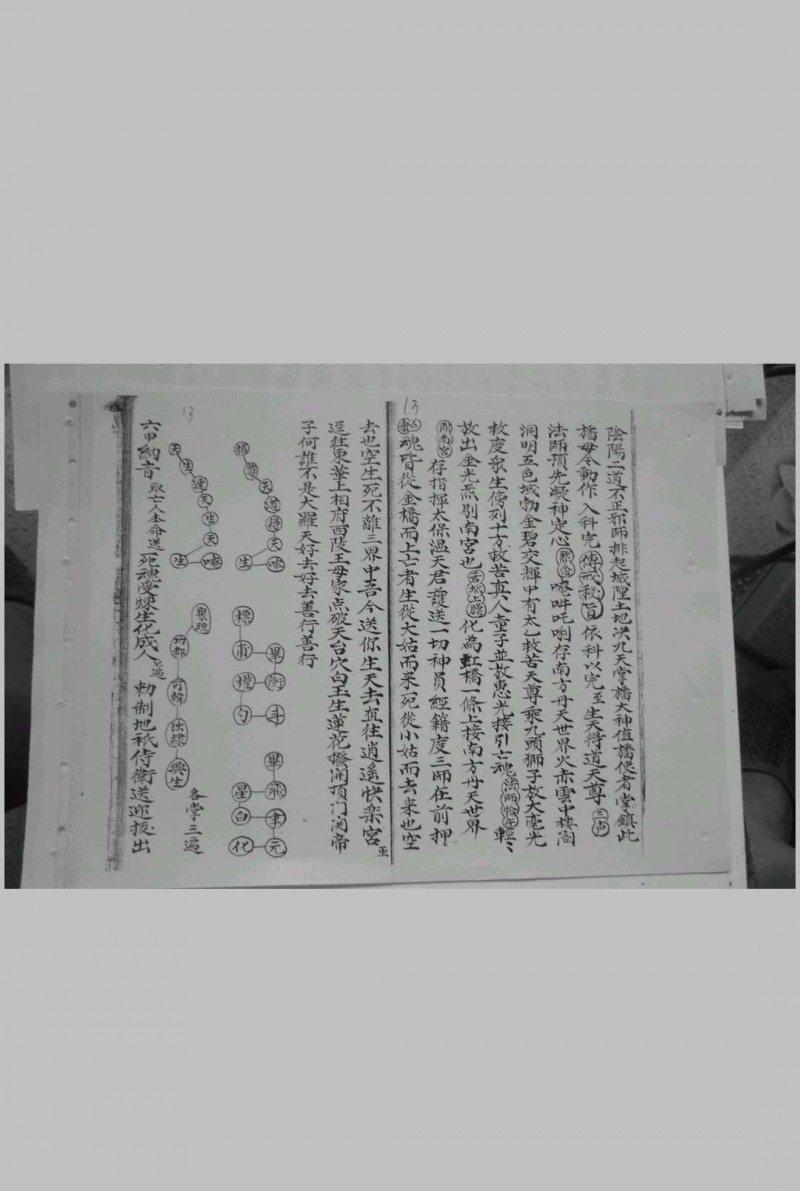 陰陽二道不正邪師排起城隍土地決九天掌橋大神值橋使者掌鎮此
橋毋令動作入科完 傳戒秘旨 依科以完至生天得道天尊 三声
法師預先凝神定心 唵吽吒唎存南方丹天世界火赤雲中樓閣
洞明五色城勃金碧交輝中有太乙救苦天尊乘九頭獅子放大毫光
救度衆生傍列十方救苦真人童子並放惠光接引亡魂 輕々
放出金光炁別南宮也 化為虹橋一條上接南方丹天世界
存指揮太保溫天君護送一切神員經籍度三師在前押
魂皆從金橋而上亡者生從大姑而来死從小姑而去来也空
13
去也空生死不離三界中吾今送你生天去直往逍遥快楽宮 並
逕往東華上相府西陵王母家点破天台穴白玉生蓮花撥開頂门闭帝
子何誰不是大羅天好去好去善行善行
天道得天
生
天生天
生
標 畢
甫
權 衡
勺 斗
畢
星 飛
白
化 元
興生
各掌三遍
13
六甲納音 取亡人本命送 死魂受煉生化成人 勅制地祇侍衛送迎拔出